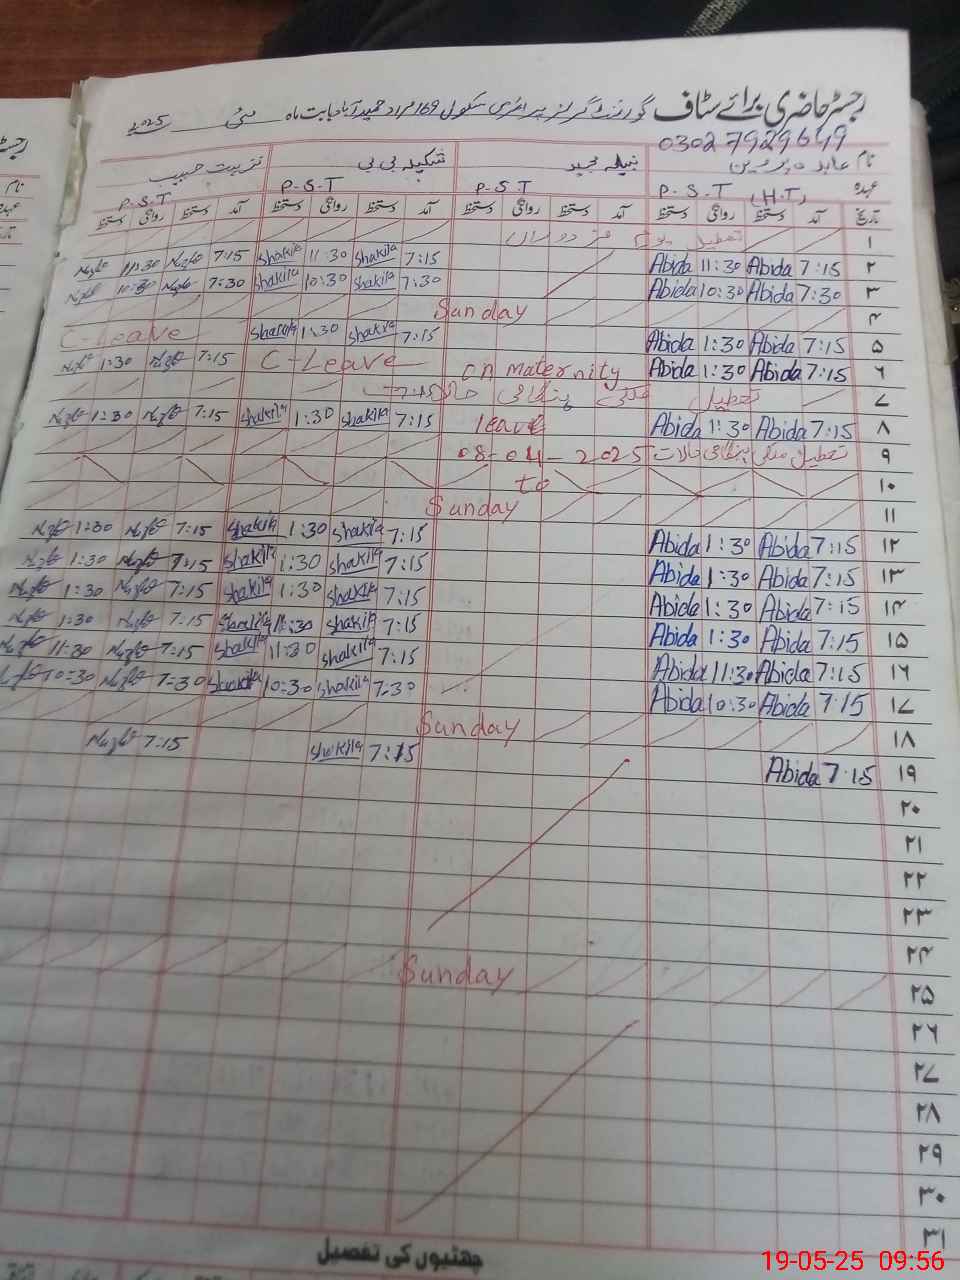 رجسٹر حاضری برائے سٹاف گورنمنٹ گرلز پرائمری سکول 169 مراد حمید آباد بابت ماہ مئی 2025
03027929649
نام عابدہ پروین نبیلہ مجید شکیلہ بی بی تربیت حبیب
عہدہ P.S.T (H.T) P.S.T P.S.T P.S.T
تاریخ آمد دستخط روانگی دستخط آمد دستخط روانگی دستخط آمد دستخط روانگی دستخط آمد دستخط روانگی دستخط
۱ تعطیل یوم مزدوراں
۲ 7:15 Abida 11:30 Abida 7:15 Shakila 11:30 Shakila 7:15 11:30
۳ 7:30 Abida 10:30 Abida 7:30 Shakila 10:30 Shakila 7:30 10:30
۴ Sunday
۵ 7:15 Abida 1:30 Abida 7:15 Shakila 1:30 Shakila C-Leave
۶ 7:15 Abida 1:30 Abida on maternity C-Leave 7:15 1:30
۷ تعطیل ملکی ہنگامی حالات
۸ 7:15 Abida 1:30 Abida leave 7:15 Shakila 1:30 Shakila 7:15 1:30
۹ تعطیل ملکی ہنگامی حالات 08-04-2025
۱۰ to
۱۱ Sunday
۱۲ 7:15 Abida 1:30 Abida 7:15 Shakila 1:30 Shakila 7:15 1:30
۱۳ 7:15 Abida 1:30 Abida 7:15 Shakila 1:30 Shakila 7:15 1:30
۱۴ 7:15 Abida 1:30 Abida 7:15 Shakila 1:30 Shakila 7:15 1:30
۱۵ 7:15 Abida 1:30 Abida 7:15 Shakila 11:30 Shakila 7:15 1:30
۱۶ 7:15 Abida 11:30 Abida 7:15 Shakila 11:30 Shakila 7:15 11:30
۱۷ 7:15 Abida 10:30 Abida 7:30 Shakila 10:30 Shakila 7:30 10:30
۱۸ Sunday
۱۹ 7:15 Abida 7:15 Shakila 7:15
۲۰
۲۱
۲۲
۲۳
۲۴
۲۵ Sunday
۲۶
۲۷
۲۸
۲۹
۳۰
۳۱
چھٹیوں کی تفصیل
19-05-25 09:56